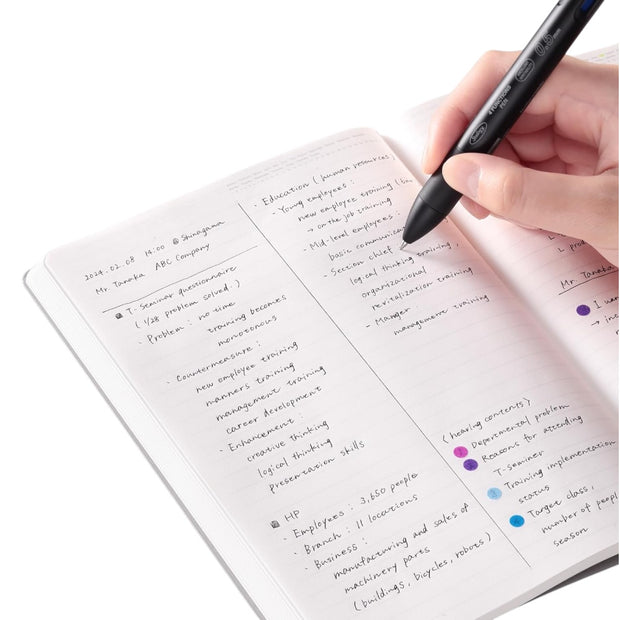 2024.02.08 14:00 @Shinagawa
Mr. Tanaka ABC Company
T-Seminar questionnaire
( 1/28 problem solved. )
- Problem : no time
training becomes
monotonous
- Countermeasure :
new employee training
manners training
management training
career development
- Enhancement :
creative thinking
logical thinking
presentation skills
HP
- Employees : 3,650 people
- Branch : 11 locations
- Business :
manufacturing and sales of
machinery parts
( buildings, bicycles, robots )
- Education ( human resources )
- Young employees :
new employee training
→ on the job training
- Mid-level employees :
basic
- Section chief :
logical thinking training ,
organizational
revitalization training
- Manger
management training
< hearing contents >
1 Departmental problem
2 Reasons for attending
T-seminer
3 Training implementation
status
4 Target class,
number of peopl
season
Mr. Tanaka
I
→
4 FUNCTIONS
PEN
0.5